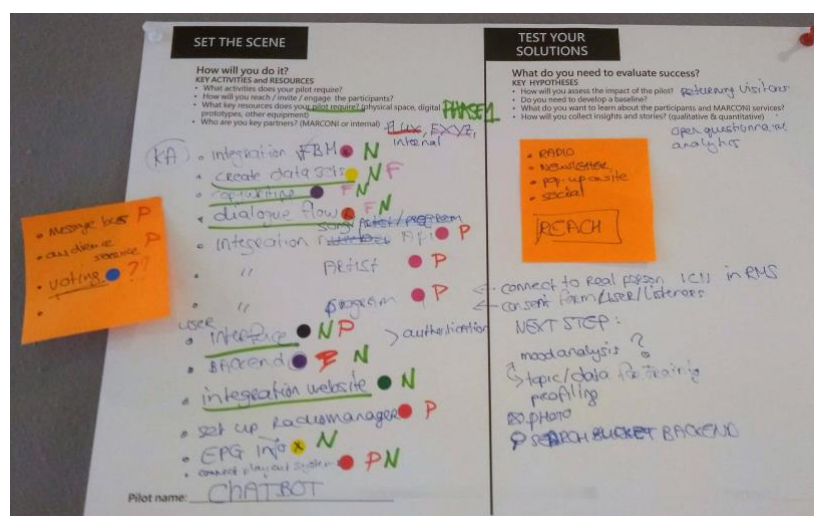 SET THE SCENE
How will you do it?
KEY ACTIVITIES and RESOURCES
• What activities does your pilot require?
• How will you reach / invite / engage the participants?
• What key resources does your pilot require? (physical space, digital
prototypes, other equipment)
• Who are you key partners? (MARCONI or internal)
PHASE 1
FLUX, EXYZ,
internal
KA
• integration FBM N
• create data sets N F
• copywriting F N
• dialogue flow F N
song
• integration API P
• " ARTIST P
• " program P
user
• interface N P > authentication
• BACKend P N
• integration website N
• set up Radiomanager P
• EPG info N
• connect playout system P N
Pilot name: CHATBOT
• message bus P
• audience service P
• voting ??
•
TEST YOUR
SOLUTIONS
What do you need to evaluate success?
KEY HYPOTHESES
• How will you assess the impact of the pilot? returning visitors
• Do you need to develop a baseline?
• What do you want to learn about the participants and MARCONI services?
• How will you collect insights and stories? (qualitative & quantitative)
open questionnaire
analytics
• RADIO
• NEWSLETTER
• pop-up onsite
• social
REACH
connect to real person in RMS
consent form/user/listeners
NEXT STEP:
mood analysis ?
topic/data for training
profiling
PHOTO
SEARCH BUCKET BACKEND